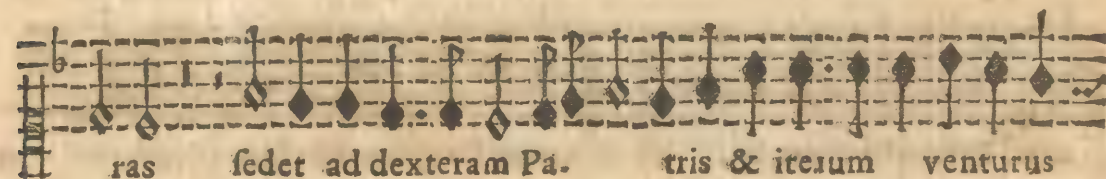 ras ſedet ad dexteram Pa- tris & iterum venturus